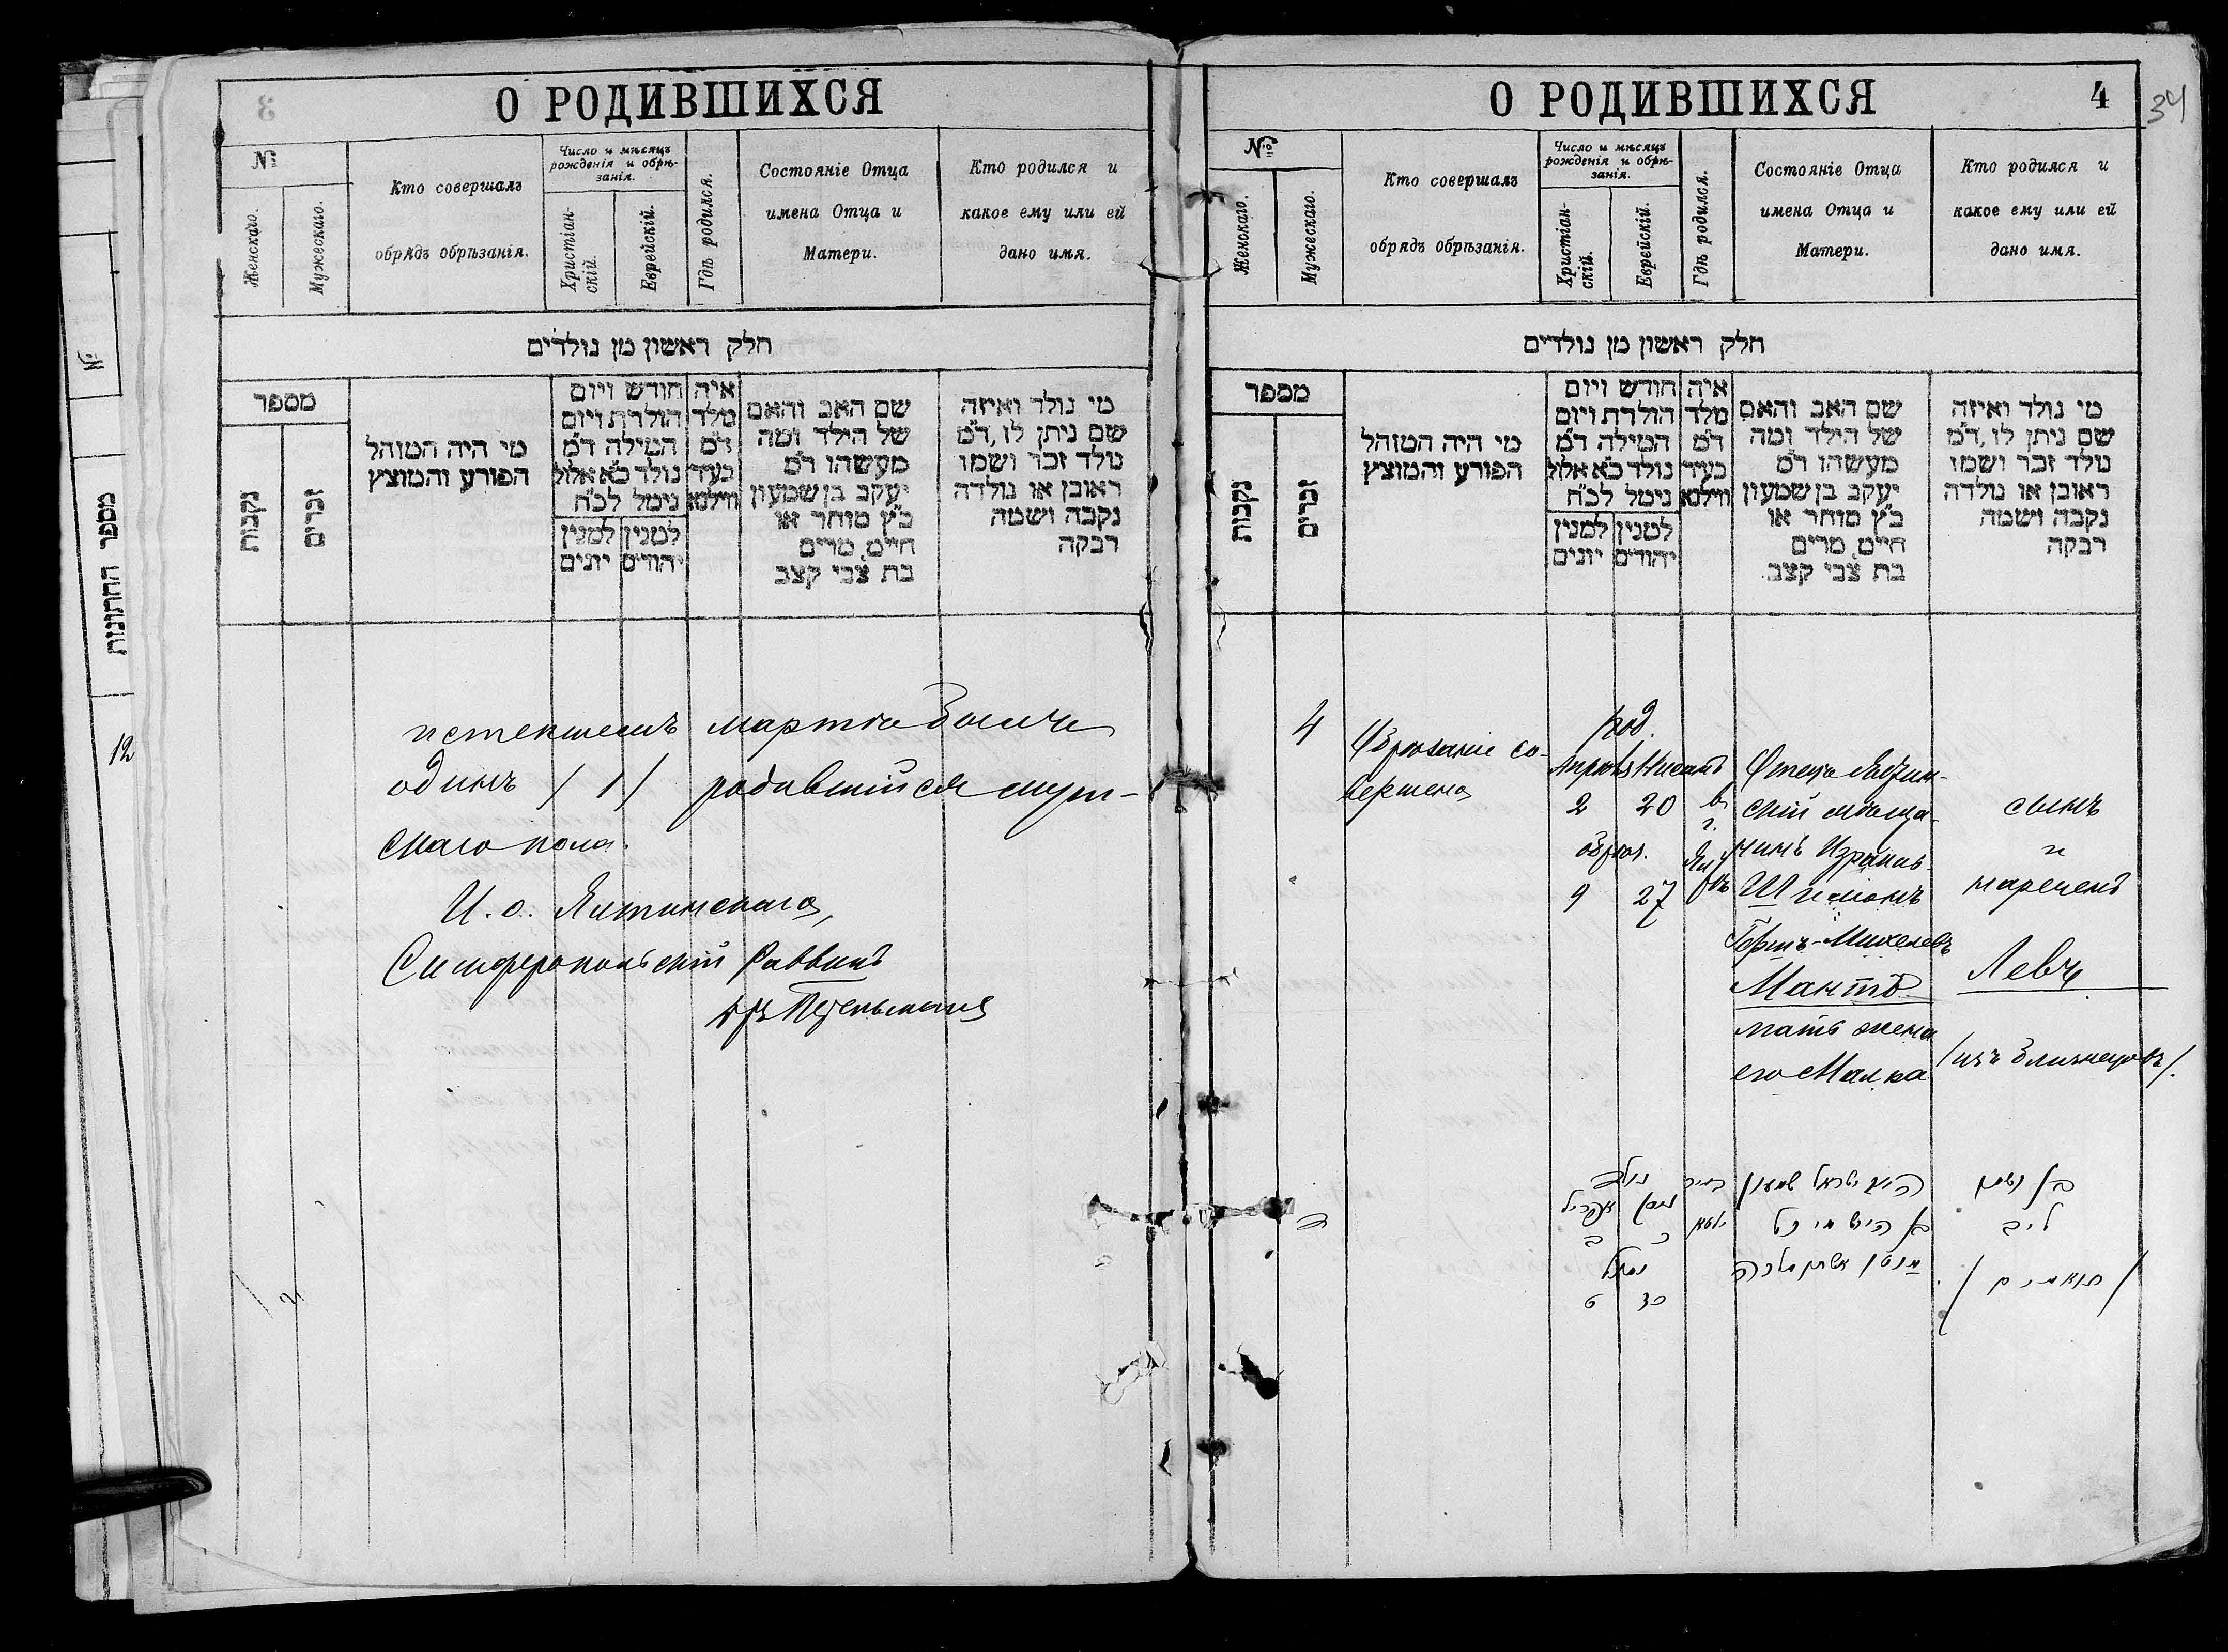 О РОДИВШИХСЯ
3
№
Женскаго.
Мужескаго.
Кто совершалъ
обрядъ обрѣзанія.
Число и мѣсяцъ
рожденія и обрѣ-
занія.
Христіан-
скій.
Еврейскій.
Гдѣ родился.
Состояніе Отца
имена Отца и
Матери.
Кто родился и
какое ему или ей
дано имя.
חלק ראשון מן נולדים
מספר
נקבות
זכרים
מי היה המוהל
הפורע והמוצץ
חודש ויום
הולדת ויום
המילה ד״מ
נולד כ״א אלול
נימל לכ״ח
למנין למנין
יהודים יונים
איה
מלד
ד״מ
בעיר
ווילנא
שם האב והאם
של הילד ומה
מעשהו ד״מ
יעקב בן שמעון
כ״ץ סוחר או
חיים, מרים
בת צבי קצב
מי נולד ואיזה
שם ניתן לו, ד״מ
נולד זכר ושמו
ראובן או נולדה
נקבה ושמה
רבקה
истекшемъ мартѣ былъ
одинъ /1/ родившійся муж-
скаго пола.
И. о. Ялтинскаго,
Симферопольскій Раввинъ
№
מספר החתונות
12
О РОДИВШИХСЯ
4
34
№
Женскаго.
Мужескаго.
Кто совершалъ
обрядъ обрѣзанія.
Число и мѣсяцъ
рожденія и обрѣ-
занія.
Христіан-
скій.
Еврейскій.
Гдѣ родился.
Состояніе Отца
имена Отца и
Матери.
Кто родился и
какое ему или ей
дано имя.
חלק ראשון מן נולדים
מספר
נקבות
זכרים
מי היה המוהל
הפורע והמוצץ
חודש ויום
הולדת ויום
המילה ד״מ
נולד כ״א אלול
נימל לכ״ח
למנין למנין
יהודים יונים
איה
מלד
ד״מ
בעיר
ווילנא
שם האב והאם
של הילד ומה
מעשהו ד״מ
יעקב בן שמעון
כ״ץ סוחר או
חיים, מרים
בת צבי קצב
מי נולד ואיזה
שם ניתן לו, ד״מ
נולד זכר ושמו
ראובן או נולדה
נקבה ושמה
רבקה
4
Обрѣзаніе со-
вершено
род.
Апрель Нисанъ
2 20
обрѣз.
9 27
въ
г.
Отецъ
скій мѣща-
нинъ Израиль
Шимонъ
Гершъ-Михелевъ
Мантъ
мать жена
его Малка
сынъ
и
нареченъ
Левъ
/изъ близнецовъ/.
ד
נולד
ניסן אפריל
כ ב
נימול
כז ט
בעיר
יאלטא
ישראל שמעון
בן הירש מיכל
אשתו מלכה
בן ושמו
ליב
/תאומים/